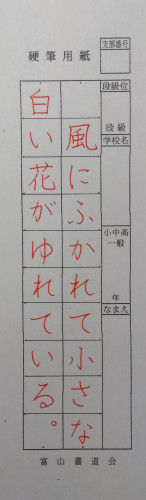 支部番号
硬筆用紙
段級位
段級
学校名
小中高
一般
年
なまえ
風にふかれて小さな
白い花がゆれている。
富山書道会